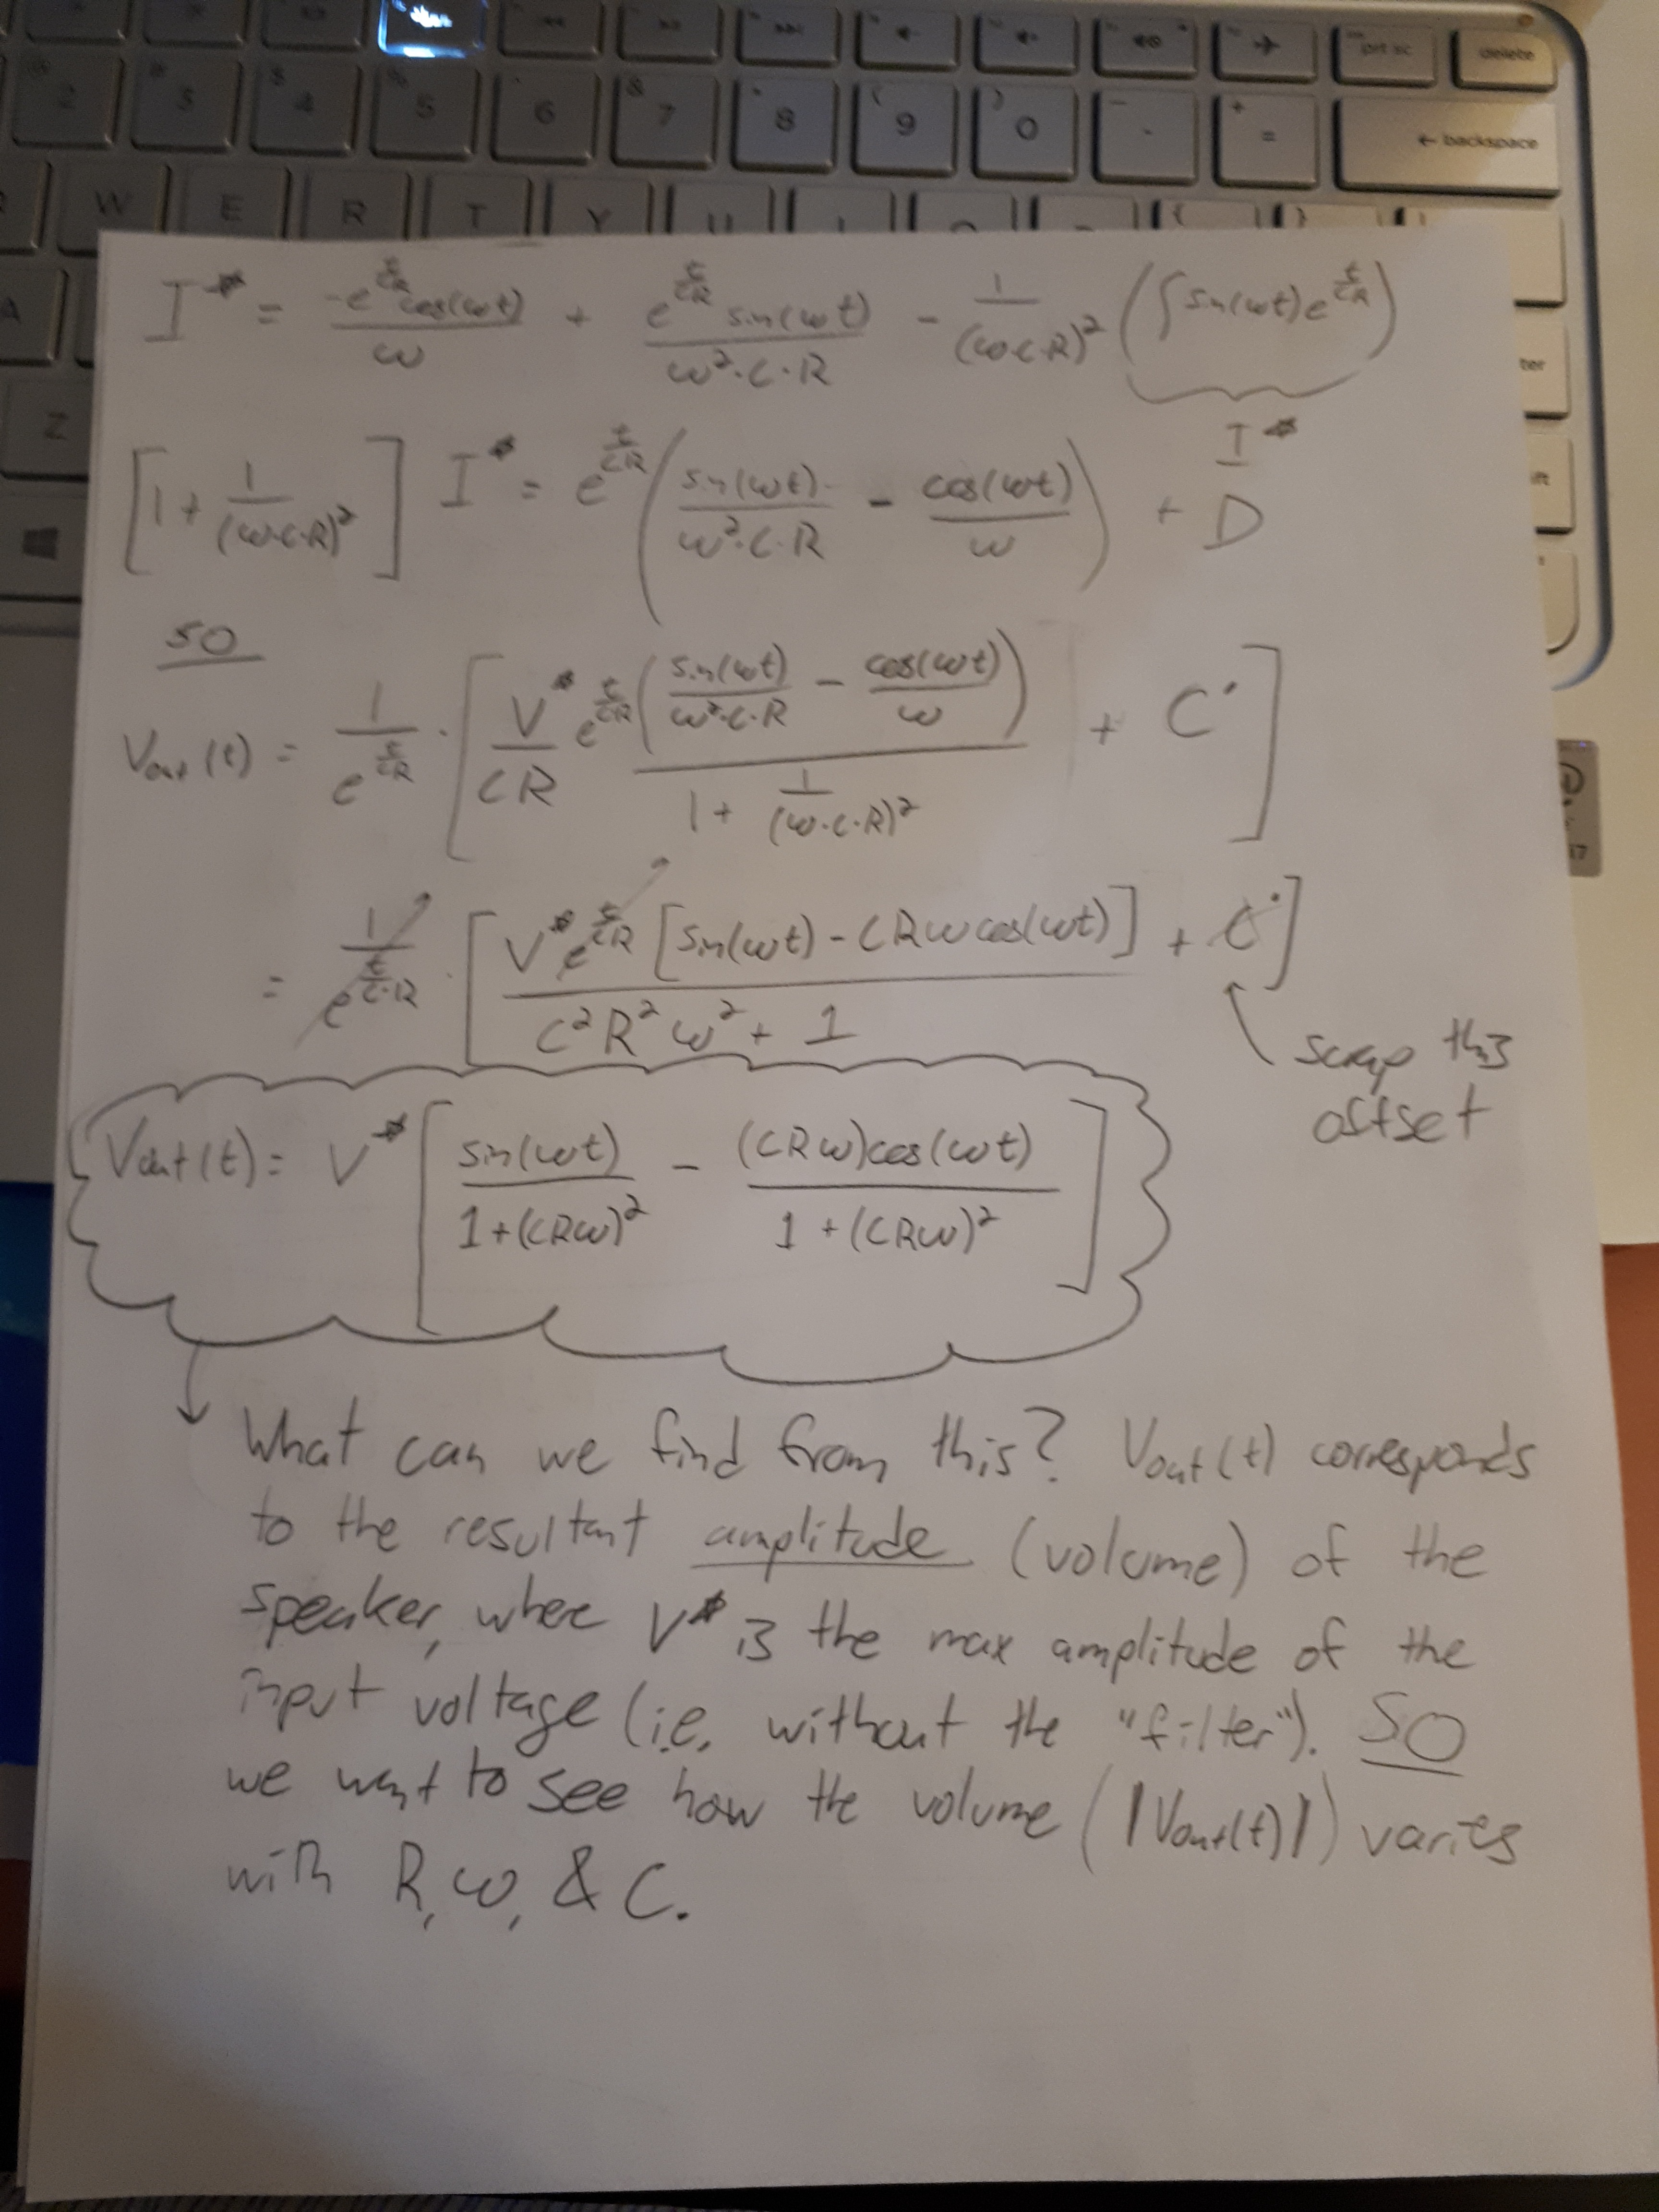 I* = -e^{t/CR} cos(ωt) / ω + e^{t/CR} sin(ωt) / ω²·C·R - 1/(ωCR)² (∫ sin(ωt) e^{t/CR})
I*
[1 + 1/(ωC·R)²] I* = e^{t/CR} (sin(ωt) / ω²·C·R - cos(ωt) / ω) + D
SO
Vout(t) = 1/e^{t/CR} · [V*/CR e^{t/CR} (sin(ωt) / ω²·C·R - cos(ωt) / ω) / 1 + 1/(ω·C·R)² + C']
= 1/e^{t/C·R} · [V* e^{t/CR} [sin(ωt) - CRω cos(ωt)] / C²R²ω² + 1 + C']
scrap this
ofset
Vout(t) = V* [sin(ωt) / 1+(CRω)² - (CRω)cos(ωt) / 1+(CRω)²]
What can we find from this? Vout(t) corresponds
to the resultant amplitude (volume) of the
speaker, where V* is the max amplitude of the
input voltage (i.e. without the "filter"). SO
we want to see how the volume (|Vout(t)|) varies
with R, ω, & C.
W E R T Y
A
Z
2 3 4 5 6 7 8 9 0 - + =
← backspace
delete
prt sc